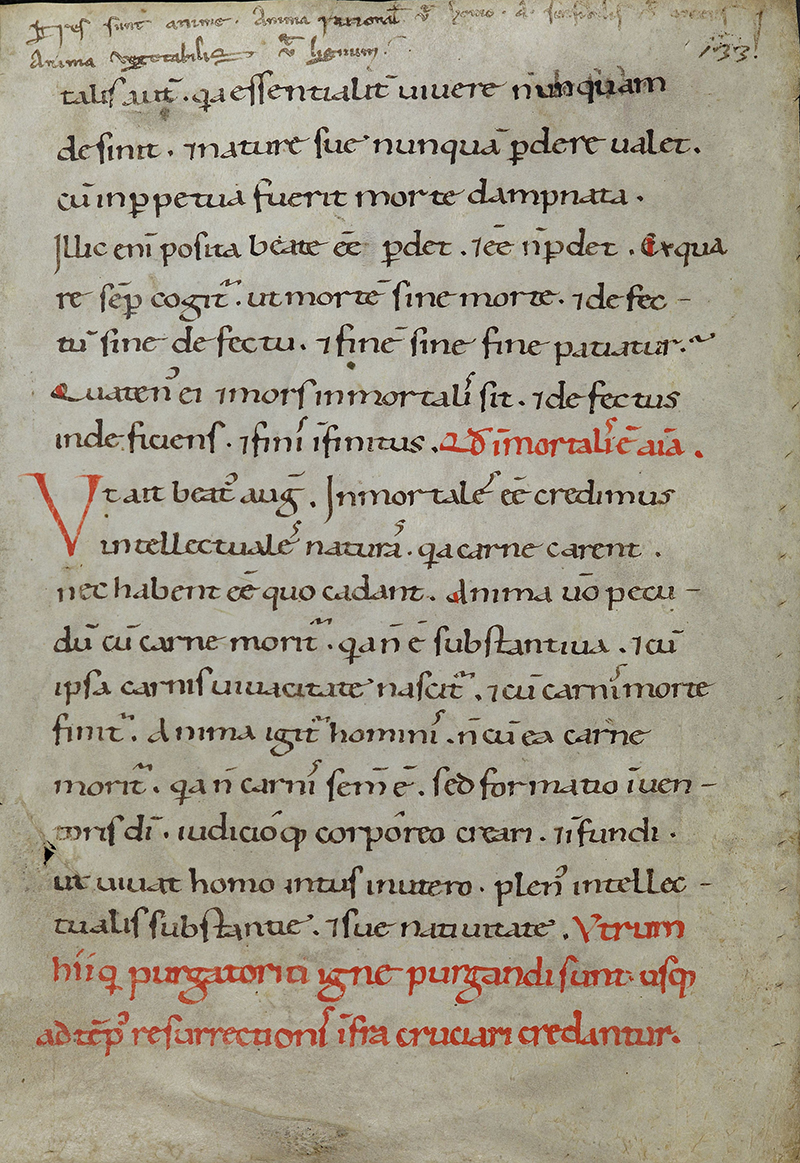 Tres sunt anime. Anima rational̄ ūt homo.
Anima vegetabilis ūt lignum.
133
talis aut̄. q̄a essentialit̄ uiuere nunquam
desinit. ⁊nature sue nunquā ꝑdere ualet.
cū inꝑpetua fuerit morte dampnata.
Illic enī posita beate eē ꝑdet. ⁊eē n̄ꝑdet. Ex qua
re sēꝑ cogit̄. ut mortē sine morte. ⁊defec-
tū sine defectu. ⁊finē sine fine patiatur.
Quaten᾿ ei ⁊mors inmortaliˢ sit. ⁊defectus
indeficiens. ⁊finiˢ īfinitus. Qd̄ īmortaliˢ ē aīa.
Ut ait beat᾿ auḡ. Inmortaleˢ eē credimus
intellectualeˢ naturaˢ. q̄a carne carent.
nec habent eē quo cadant. Anima uō pecu-
dū cū carne morit̄. q̄a n̄ ē substantiua. ⁊cū
ipsa carnis uiuacitate nascit̄. ⁊cū carniˢ morte
finit̄. Anima igit̄ hominiˢ. n̄ cū ea carne
morit̄. q̄a n̄ carniˢ sem̄ ē. sed formatio īuen-
toris dī. iudicioqꝫ corporeo creari. ⁊īfundi.
ut uiuat homo intus inutero. plen᾿ intellec-
tualis substantie. ⁊sue natiuitate. Utrum
hii q̄ purgatorii igne purgandi sunt usqꝫ
ad tēꝑ᾿ resurrectioniˢ īfra cruciari credantur.